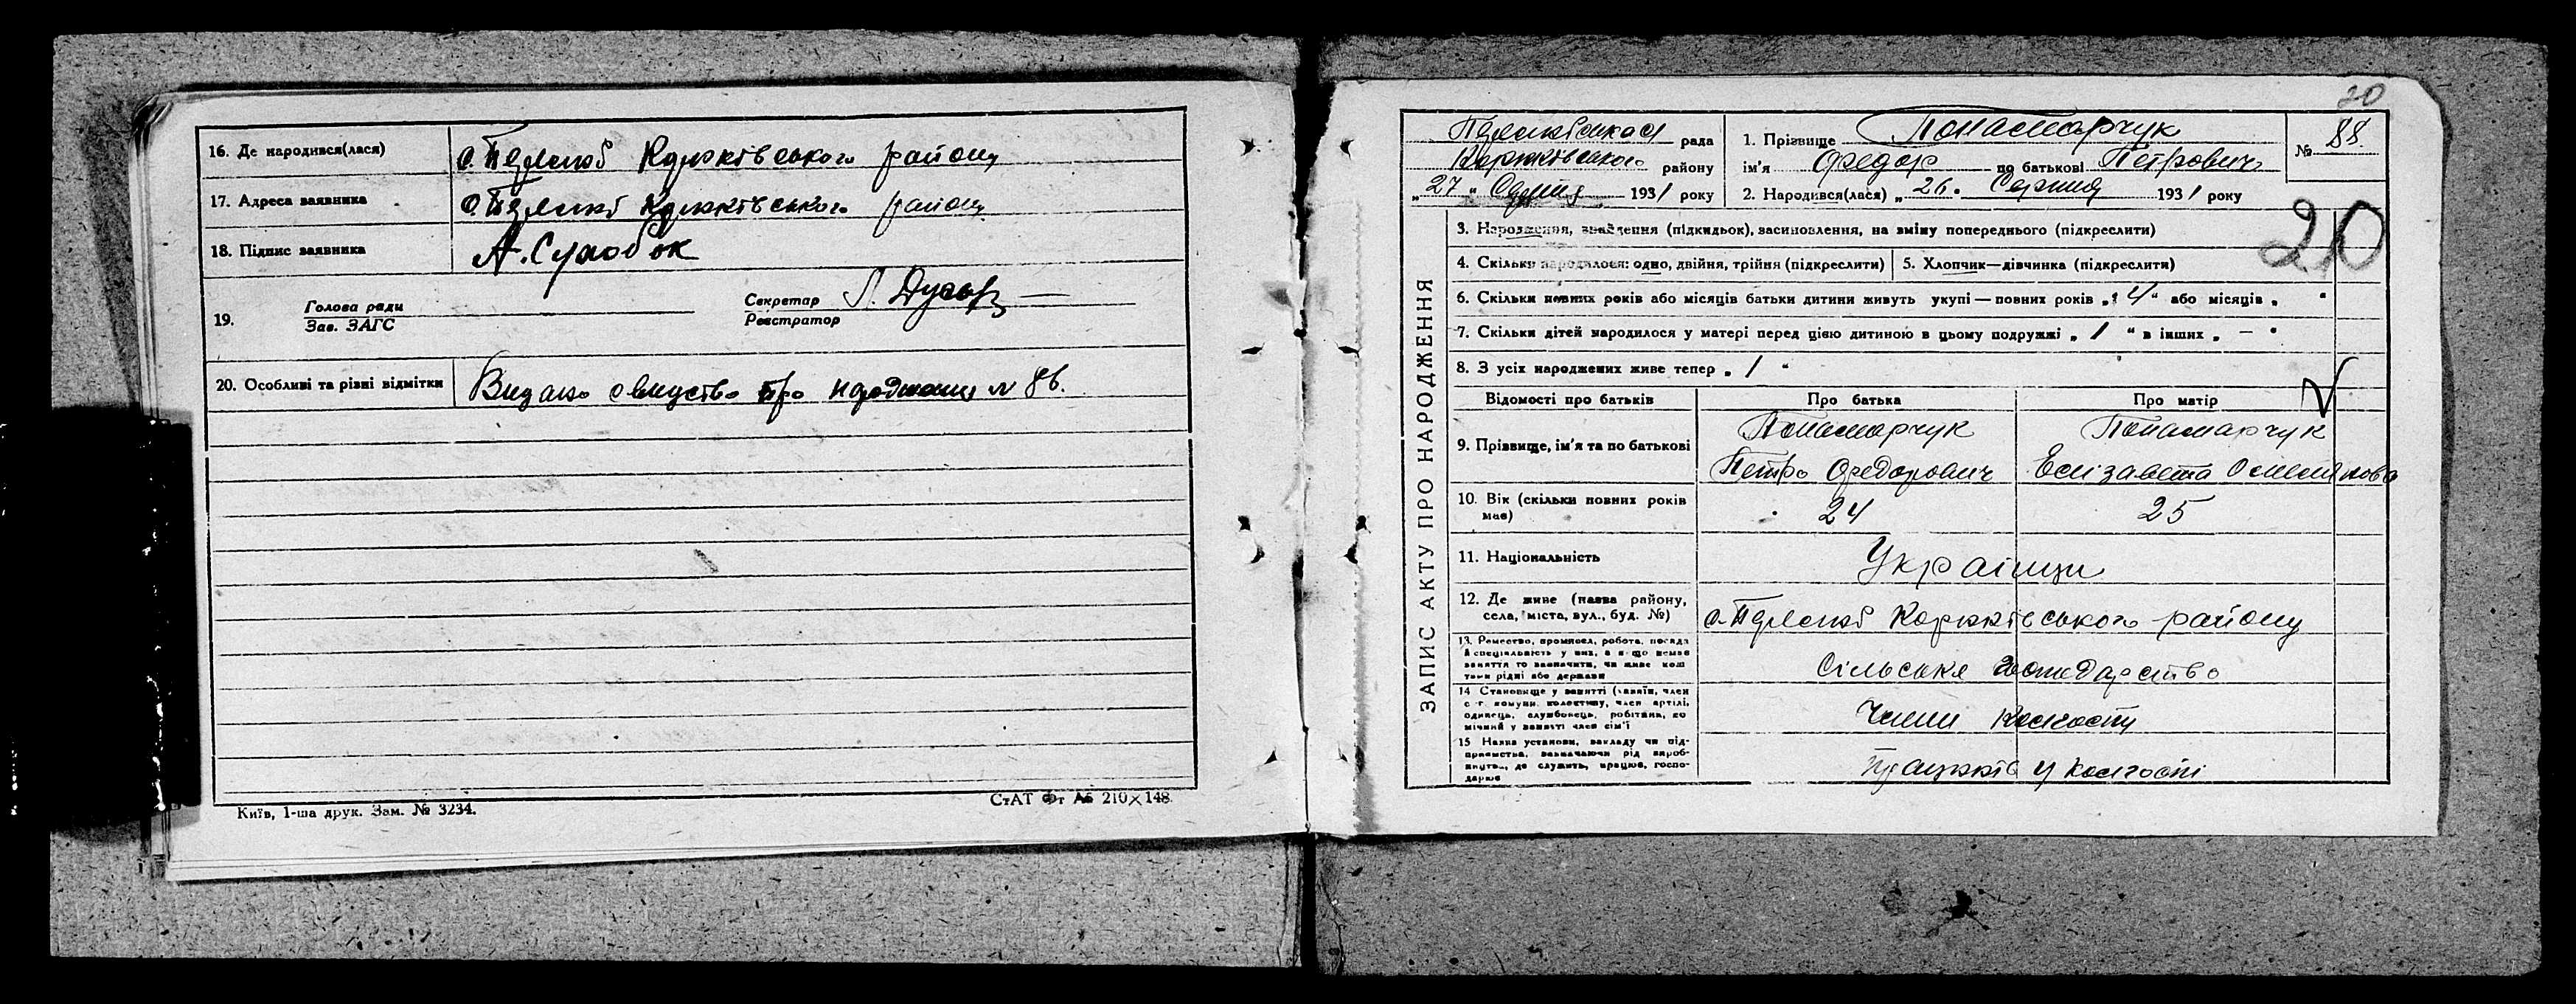 16. Де народився(лася)
району
17. Адреса заявника
району
18. Підпис заявника
А. Сухобок
19.
Голова ради
Зав. ЗАГС
Секретар
Реєстратор
20. Особливі та різні відмітки
Видано про народження № 86.
Київ, 1-ша друк. Зам. № 3234.
СтАТ Фт А5 210×148.
20
рада
району
„27„ 1931 року
1. Прізвище Понамарчук
ім'я Федор по батькові Петрович
2. Народився(лася) „26„ Серпня 1931 року
№ 88
20
ЗАПИС АКТУ ПРО НАРОДЖЕННЯ
3. Народження, знайдення (підкидьок), засиновлення, на зміну попереднього (підкреслити)
4. Скільки народилося: одно, двійня, трійня (підкреслити)
5. Хлопчик—дівчинка (підкреслити)
6. Скільки повних років або місяців батьки дитини живуть укупі — повних років „4“ або місяців „ “
7. Скільки дітей народилося у матері перед цією дитиною в цьому подружжі „1“ в інших „—“
8. З усіх народжених живе тепер „1“
Відомості про батьків
Про батька
Про матір
9. Прізвище, ім'я та по батькові
Понамарчук
Петро Федорович
Понамарчук
Елізавета
10. Вік (скільки повних років має)
24
25
11. Національність
Українци
12. Де живе (назва району,
села, міста, вул., буд. №)
району
13. Ремество, промисел, робота, посада
й спеціальність у них, а якщо немає
заняття то зазначити, чи живе кош
тами рідні або держави
Сільське господарство
14 Становище у занятті (хазяїн, член
с.-г. комуни, колективу, член артілі,
одинець, службовець, робітник, по
мічний у занятті член сім'ї
Члени колгоспу
15 Назва установи, закладу чи під-
приємства, зазначаючи рід вироб-
ництв, де служить, працює, госпо-
дарює
у колгоспі